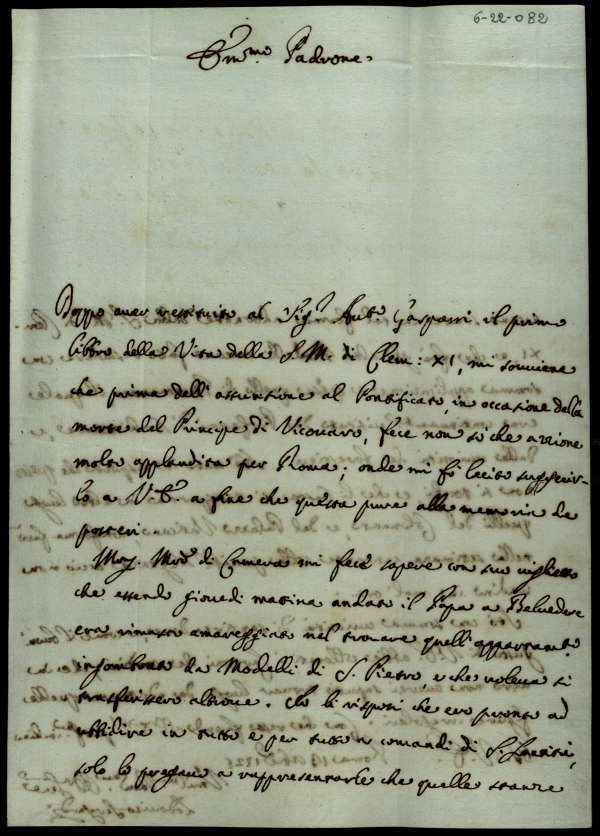 6-22-082
Em.mo Padrone.
Doppo aver restituito al Sig.r Ant.o Gasparri il primo
libbro della Vita della S. M. di Clem: XI, mi souviene
che prima dell'assunzione al Pontificato, in occasione della
morte del Principe di Vicouaro, fece non sò che azione
molto applaudita per Roma; onde mi fò lecito suggerir-
lo a V. E. a fine che questa pura alla memoria de
posteri.
Mons. Mro di Camera mi fece sapere con suo viglietto
che essendo giouedi mattina andato il Papa a Beluedere
era rimasto amareggiato nel trouare quell'appartam.to
ingombrato da Modelli di S. Pietro, e che voleua si
trasferissero altroue. Io li risposi che ero pronto ad
ubbidire in tutto e per tutto a comandi di S. Santità,
solo lo pregauo a rappresentarle che quelle stanze